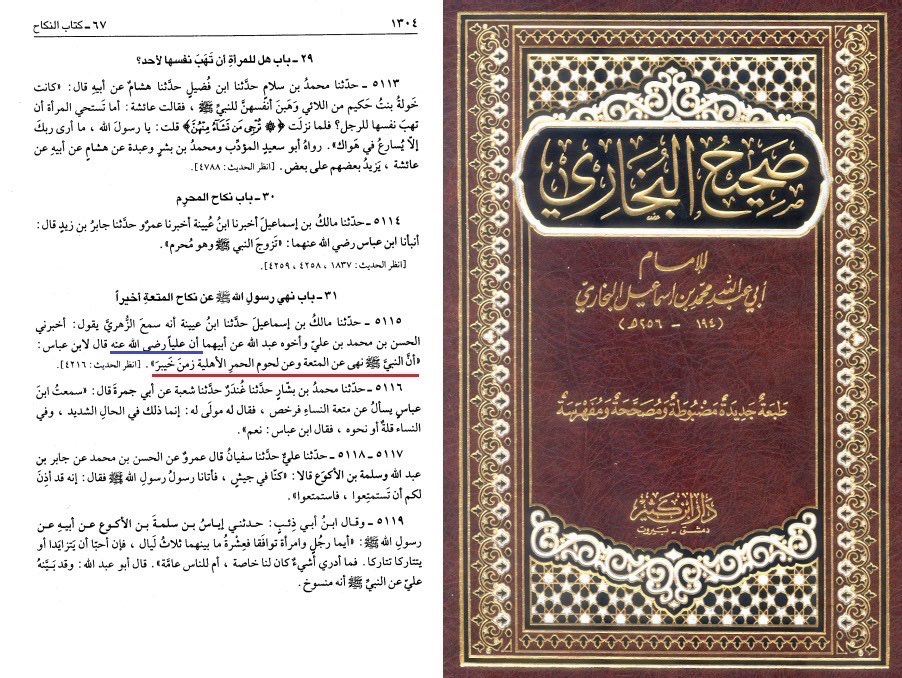 ١٣٠٤
٦٧ - كتاب النكاح
٢٩ - باب هل للمرأةِ أن تَهَبَ نفسها لأحد؟
٥١١٣ - حدّثنا محمدُ بن سلامٍ حدَّثنا ابن فُضيلٍ حدَّثنا هشامٌ عن أبيهِ قال: «كانت
خَولةُ بنتُ حَكيم من اللائي وَهَبنَ أنفُسهنَّ للنبيِّ ﷺ ، فقالت عائشة: أما تَستحي المرأة أن
تهبَ نفسها للرجل؟ فلما نزلَت ﴿۞ تُرْجِى مَن تَشَآءُ مِنْهُنَّ﴾ قلت: يا رسولَ الله ، ما أرى ربكَ
إلّا يُسارعُ في هَواك». رواهُ أبو سعيدٍ المؤدِّب ومحمدُ بن بشرٍ وعبدة عن هشام عن أبيهِ عن
عائشة ، يَزيدُ بعضهم على بعض. [انظر الحديث: ٤٧٨٨].
٣٠ - باب نكاح المحرِم
٥١١٤ - حدّثنا مالكُ بن إسماعيلَ أخبرنا ابنُ عُيينة أخبرنا عمرٌو حدَّثنا جابرُ بن زيدٍ قال:
أنبأنا ابن عباس رضي الله عنهما: «تَزوجَ النبي ﷺ وهو مُحرم».
[انظر الحديث: ١٨٣٧ ، ٤٢٥٨ ، ٤٢٥٩].
٣١ - باب نهي رسولِ الله ﷺ عن نكاح المتعةِ أخيراً
٥١١٥ - حدّثنا مالكُ بن إسماعيلَ حدَّثنا ابنُ عيينة أنه سمعَ الزُّهريَّ يقول: أخبرني
الحسن بن محمد بن عليّ وأخوه عبد الله عن أبيهما أن علياً رضي الله عنه قال لابن عباس:
«أنَّ النبيَّ ﷺ نهى عن المتعة وعن لحوم الحمرِ الأهلية زمنَ خَيبرَ». [انظر الحديث: ٤٢١٦].
٥١١٦ - حدّثنا محمدُ بن بشّار حدَّثنا غُندَرٌ حدَّثنا شعبة عن أبي جمرةَ قال: «سمعتُ ابنَ
عباسٍ يسألُ عن متعة النساءِ فرخص ، فقال له مولًى له: إنما ذلك في الحالِ الشديد ، وفي
النساء قلةٌ أو نحوه ، فقال ابن عباس: نعم».
٥١١٧ - ٥١١٨ - حدّثنا عليٌّ حدَّثنا سفيانُ قال عمرٌو عن الحسن بن محمد عن جابر بن
عبد الله وسلمة بن الأكوَع قالا: «كنّا في جيشٍ ، فأتانا رسولُ رسولِ الله ﷺ فقال: إنه قد أُذِنَ
لكم أن تَستمتِعوا ، فاستمتعوا».
٥١١٩ - وقال ابنُ أبي ذِئبٍ: حدثني إياسُ بن سلمةَ بن الأكوع عن أبيهِ عن
رسولِ الله ﷺ: «أيما رجُلٍ وامرأة توافَقا فعِشْرةُ ما بينهما ثلاثُ لَيال ، فإن أحبّا أن يَتزايَدا أو
يتتاركا تتاركا. فما أدري أشيءٌ كان لنا خاصة ، أم للناس عامَّة». قال أبو عبد الله: وقد بَيَّنهُ
عليّ عن النبيِّ ﷺ أنه منسوخ.
صَحِيحُ البُخَارِي
للإمام
أبي عبد الله محمد بن إسماعيل البخاري
(١٩٤ - ٢٥٦هـ)
طبعَة جَديدَة مَضبُوطة وَمُصَححَة وَمُفَهرسَة
دار ابن كثير
دمشق - بيروت